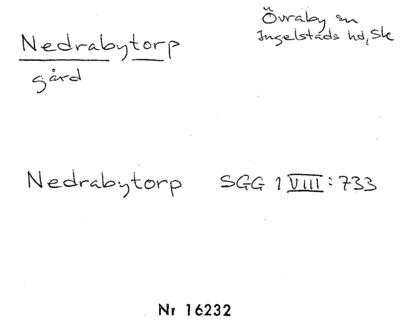 Nedrabytorp
gård
Övraby sn
Ingelstads hd, Sk
Nedrabytorp SGG 1 VIII : 733
Nr 16232